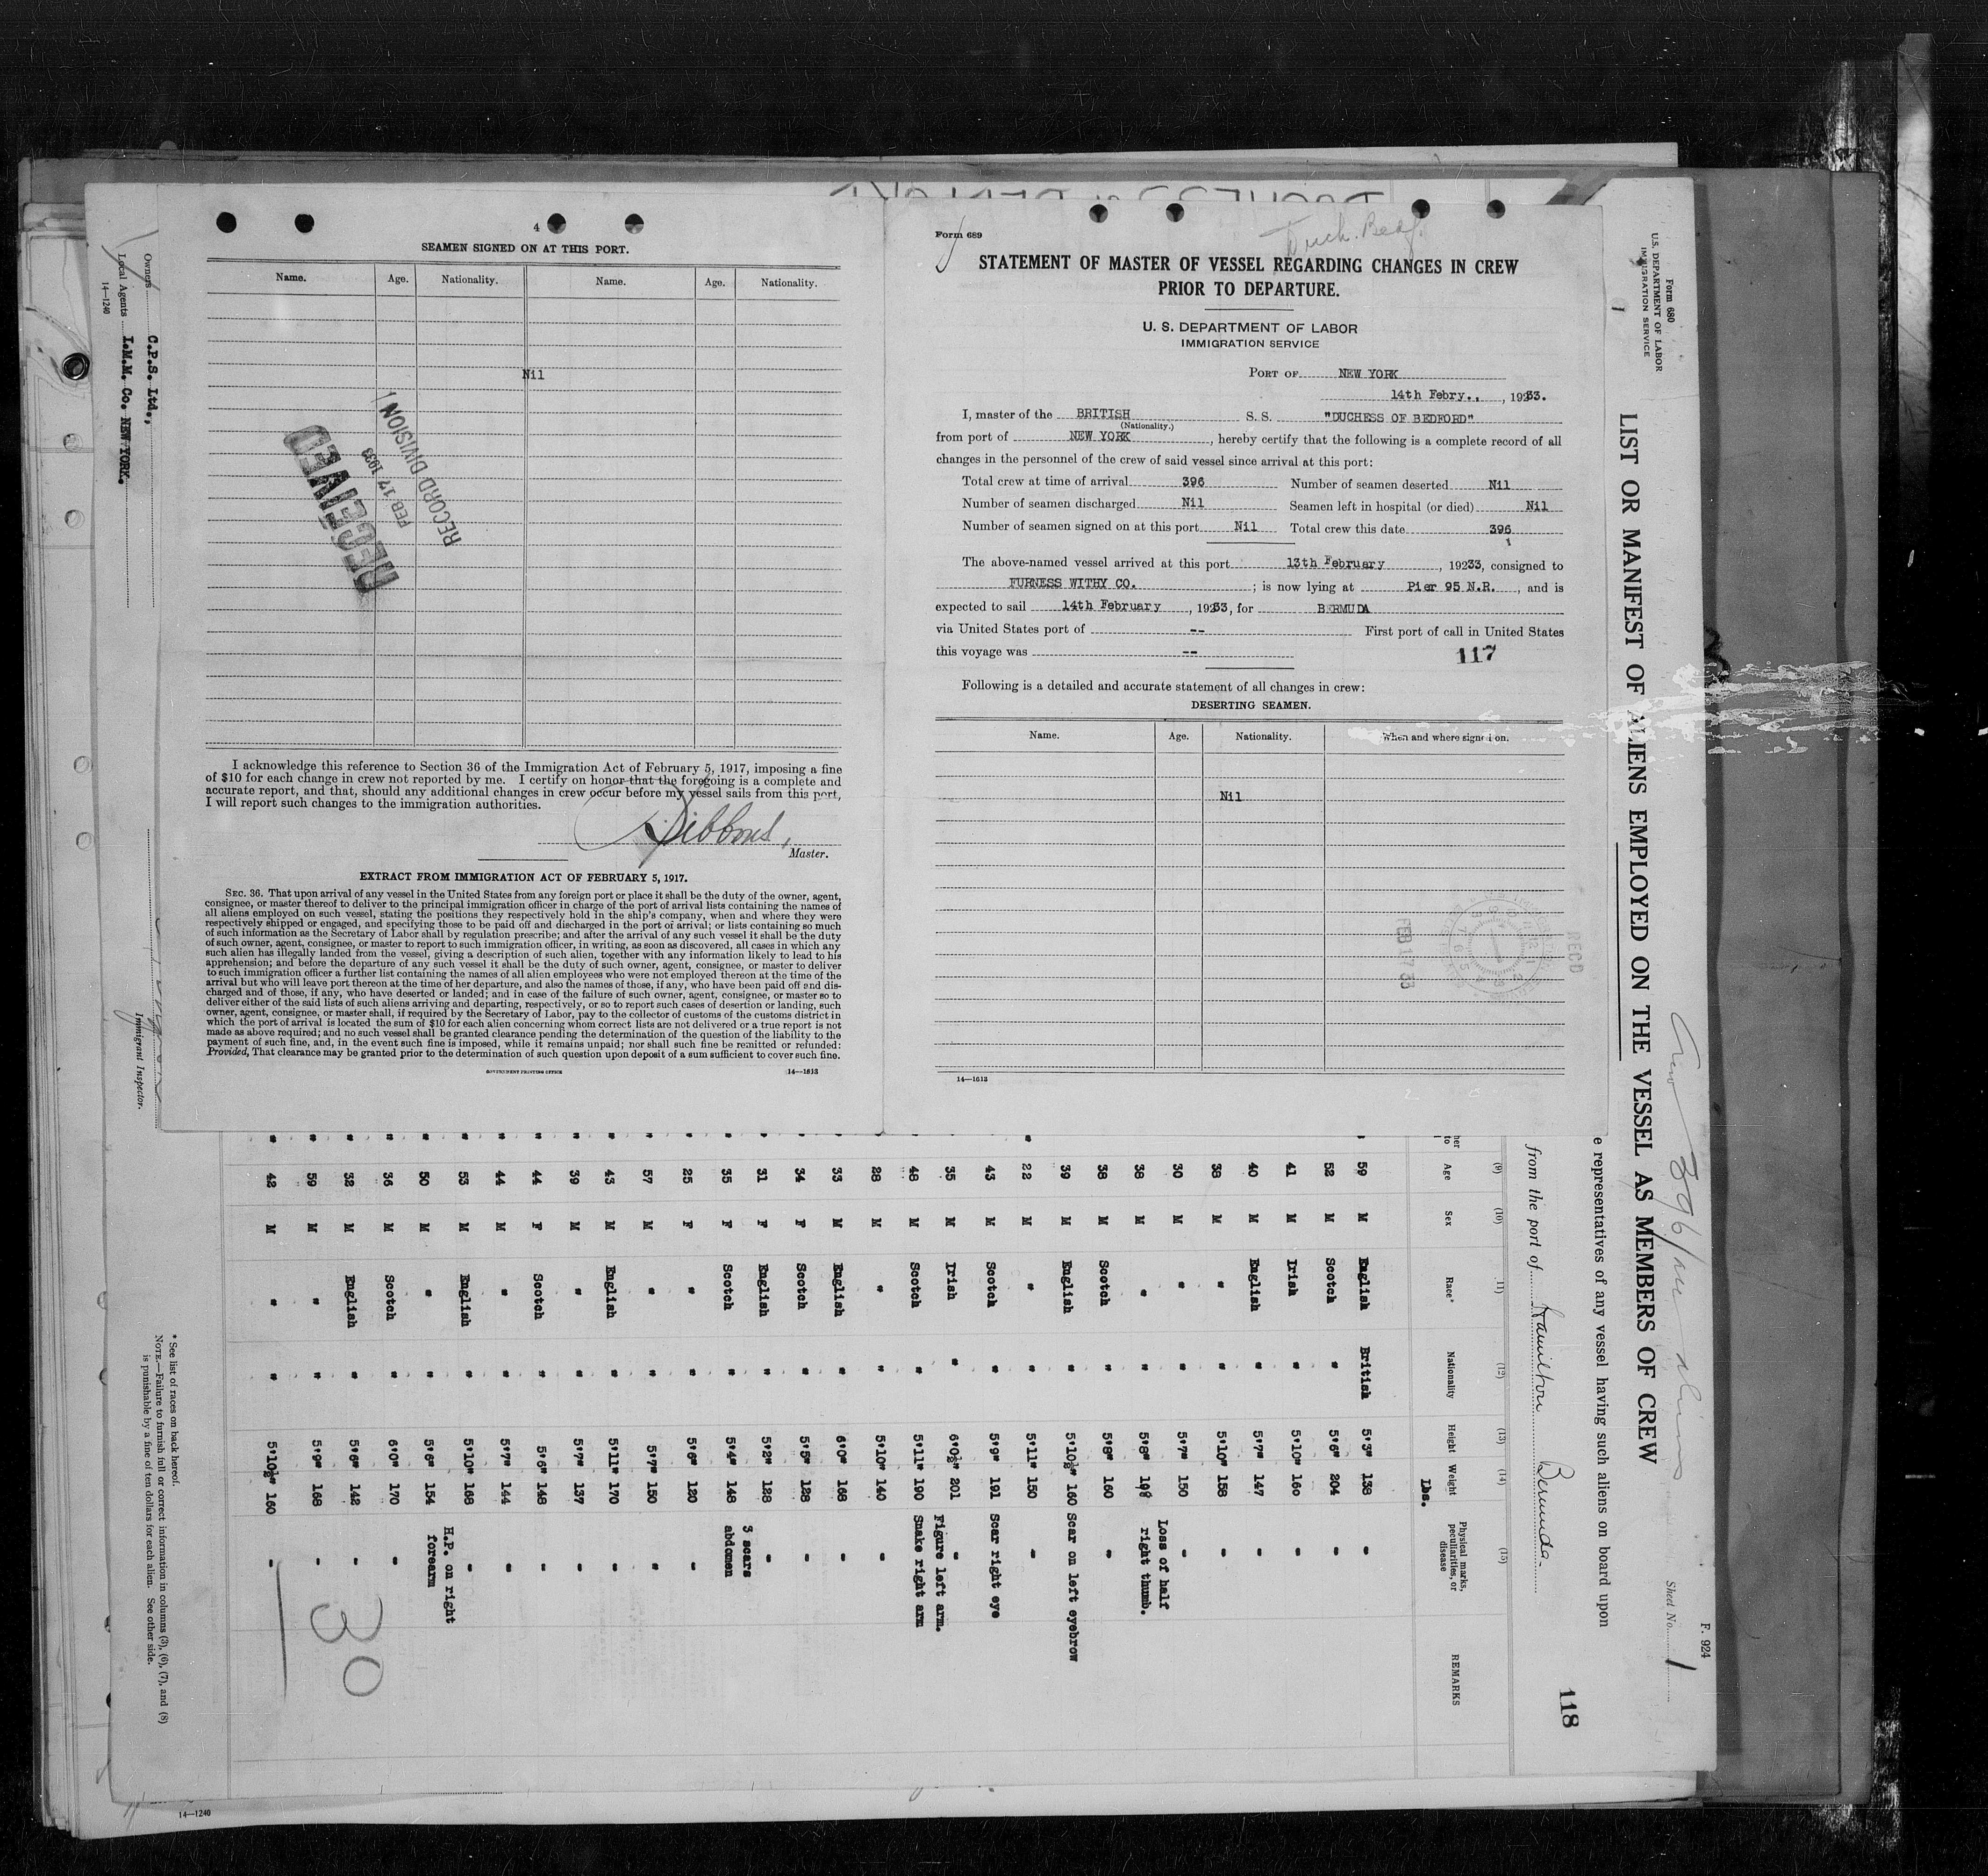 4
SEAMEN SIGNED ON AT THIS PORT.
Name. Age. Nationality. Name. Age. Nationality.
Nil
RECEIVED
FEB 17 1933
RECORD DIVISION
I acknowledge this reference to Section 36 of the Immigration Act of February 5, 1917, imposing a fine
of $10 for each change in crew not reported by me. I certify on honor that the foregoing is a complete and
accurate report, and that, should any additional changes in crew occur before my vessel sails from this port,
I will report such changes to the immigration authorities.
Sibbons,
Master.
EXTRACT FROM IMMIGRATION ACT OF FEBRUARY 5, 1917.
SEC. 36. That upon arrival of any vessel in the United States from any foreign port or place it shall be the duty of the owner, agent,
consignee, or master thereof to deliver to the principal immigration officer in charge of the port of arrival lists containing the names of
all aliens employed on such vessel, stating the positions they respectively hold in the ship's company, when and where they were
respectively shipped or engaged, and specifying those to be paid off and discharged in the port of arrival; or lists containing so much
of such information as the Secretary of Labor shall by regulation prescribe; and after the arrival of any such vessel it shall be the duty
of such owner, agent, consignee, or master to report to such immigration officer, in writing, as soon as discovered, all cases in which any
such alien has illegally landed from the vessel, giving a description of such alien, together with any information likely to lead to his
apprehension; and before the departure of any such vessel it shall be the duty of such owner, agent, consignee, or master to deliver
to such immigration officer a further list containing the names of all alien employees who were not employed thereon at the time of the
arrival but who will leave port thereon at the time of her departure, and also the names of those, if any, who have been paid off and dis-
charged and of those, if any, who have deserted or landed; and in case of the failure of such owner, agent, consignee, or master so to
deliver either of the said lists of such aliens arriving and departing, respectively, or so to report such cases of desertion or landing, such
owner, agent, consignee, or master shall, if required by the Secretary of Labor, pay to the collector of customs of the customs district in
which the port of arrival is located the sum of $10 for each alien concerning whom correct lists are not delivered or a true report is not
made as above required; and no such vessel shall be granted clearance pending the determination of the question of the liability to the
payment of such fine, and, in the event such fine is imposed, while it remains unpaid; nor shall such fine be remitted or refunded:
Provided, That clearance may be granted prior to the determination of such question upon deposit of a sum sufficient to cover such fine.
GOVERNMENT PRINTING OFFICE 14—1613
Form 689
Duch. Bedf.
STATEMENT OF MASTER OF VESSEL REGARDING CHANGES IN CREW
PRIOR TO DEPARTURE.
U. S. DEPARTMENT OF LABOR
IMMIGRATION SERVICE
PORT OF NEW YORK
14th Febry.., 1933.
I, master of the BRITISH S. S. "DUCHESS OF BEDFORD"
(Nationality.)
from port of NEW YORK, hereby certify that the following is a complete record of all
changes in the personnel of the crew of said vessel since arrival at this port:
Total crew at time of arrival 396 Number of seamen deserted Nil
Number of seamen discharged Nil Seamen left in hospital (or died) Nil
Number of seamen signed on at this port Nil Total crew this date 396
The above-named vessel arrived at this port 13th February, 1933, consigned to
FURNESS WITHY CO.; is now lying at Pier 95 N.R., and is
expected to sail 14th February, 1933, for BERMUDA
via United States port of -- First port of call in United States
this voyage was --
117
Following is a detailed and accurate statement of all changes in crew:
DESERTING SEAMEN.
Name. Age. Nationality. When and where signed on.
Nil
FEB 17 33
RECD
14—1613
Form 680
U. S. DEPARTMENT OF LABOR
IMMIGRATION SERVICE
F. 924
Sheet No. 1
Crew 396
LIST OR MANIFEST OF ALIENS EMPLOYED ON THE VESSEL AS MEMBERS OF CREW
e representatives of any vessel having such aliens on board upon
from the port of Hamilton Bermuda.
118
(9) (10) (12) (13) (14) (15)
Age Sex Race* Nationality Height Weight Physical marks, peculiarities, or disease REMARKS
Lbs.
59 M English British 5'3" 138 -
52 M Scotch " 5'6" 204 -
41 M Irish " 5'10" 160 -
40 M English " 5'7" 147 -
38 M " " 5'10" 158 -
30 M " " 5'7" 150 -
38 M " " 5'8" Loss of half right thumb.
38 M Scotch " 5'8" 160 -
39 M English " 5'10½" 160 Scar on left eyebrow
22 M " " 5'11" 150 -
43 M Scotch " 5'9" 191 Scar right eye
35 M Irish " 6'0½" 201 -
48 M Scotch " 5'11" 190 Figure left arm. Snake right arm
28 M " " 5'10" 140 -
33 M English " 6'0" 168 -
34 F Scotch " 5'5" 128 -
31 F English " 5'2" 128 -
35 F Scotch " 5'4" 148 3 scars abdomen
25 F " " 5'6" 120 -
57 M " " 5'7" 150 -
43 M English " 5'11" 170 -
39 M " " 5'7" 137 -
44 F Scotch " 5'6" 148 -
44 M " " 5'7" 144 -
53 M English " 5'10" 168 -
50 M " " 5'6" 154 H.P. on right forearm
36 M Scotch " 6'0" 170 -
32 M English " 5'6" 142 -
59 M " " 5'9" 168 -
42 M " " 5'10½" 160 -
30
* See list of races on back hereof.
NOTE.—Failure to furnish full or correct information in columns (3), (6), (7), and (8)
is punishable by a fine of ten dollars for each alien. See other side.
Owners C.P.S. Ltd.,
Local Agents I.M.M. Co. NEW YORK.
14—1240
Immigrant Inspector.
14—1240